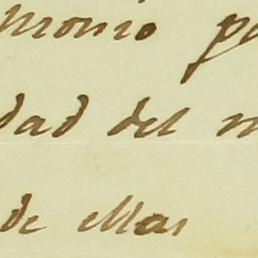 monio p
dad del m
de Mas